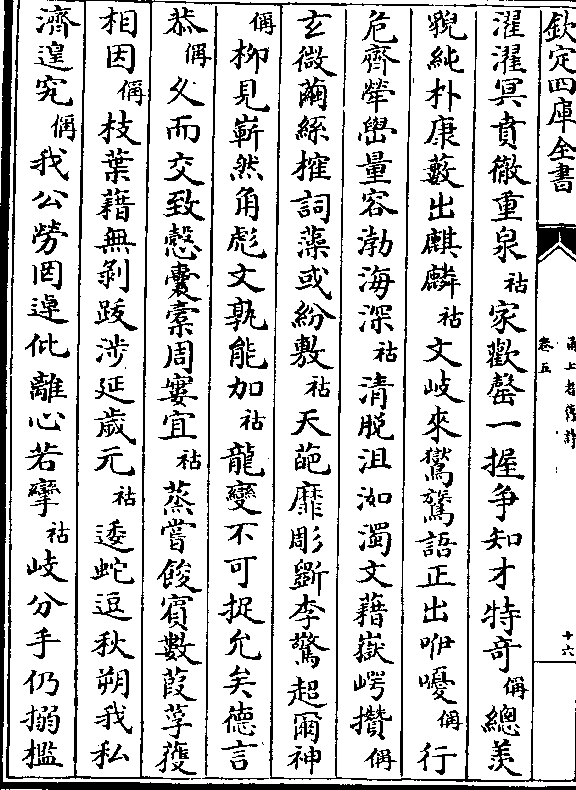 欽定四庫全書
卷五
十六
濯濯冥賁徹重泉祜家歡罄一握爭知才特奇偁總羨
猊純朴康藪出麒麟祜文岐來鸑鷟語正出咿嚘偁行
危齊犖嶨量容渤海深祜清脫沮洳濁文藉嶽崿攢偁
玄微繭絲搉詞藻或紛敷祜天葩靡彫斵李驚超爾神
偁柳見嶄然角彪文孰能加祜龍變不可捉允矣德言
恭偁久而交致慤囊橐周寠宜祜蒸嘗餕賓數葭莩獲
相因偁枝葉藉無剝跋涉延歲元祜逶蛇逗秋朔我私
濟遑宄偁我公勞罔逴仳離心若攣祜岐分手仍搦檻